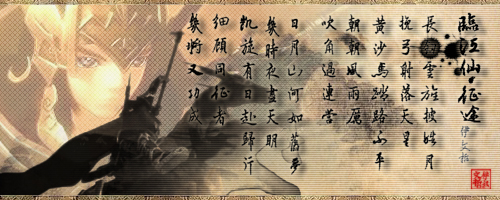 臨江仙·征途
長雲旌披皓月
挽弓射落天星
黃沙馬踏路不平
朝朝風雨厲
吹角過連營
日月山河如舊乎
幾時夜盡天明
凱旋有日赴歸行
細願同征者
幾將又功成